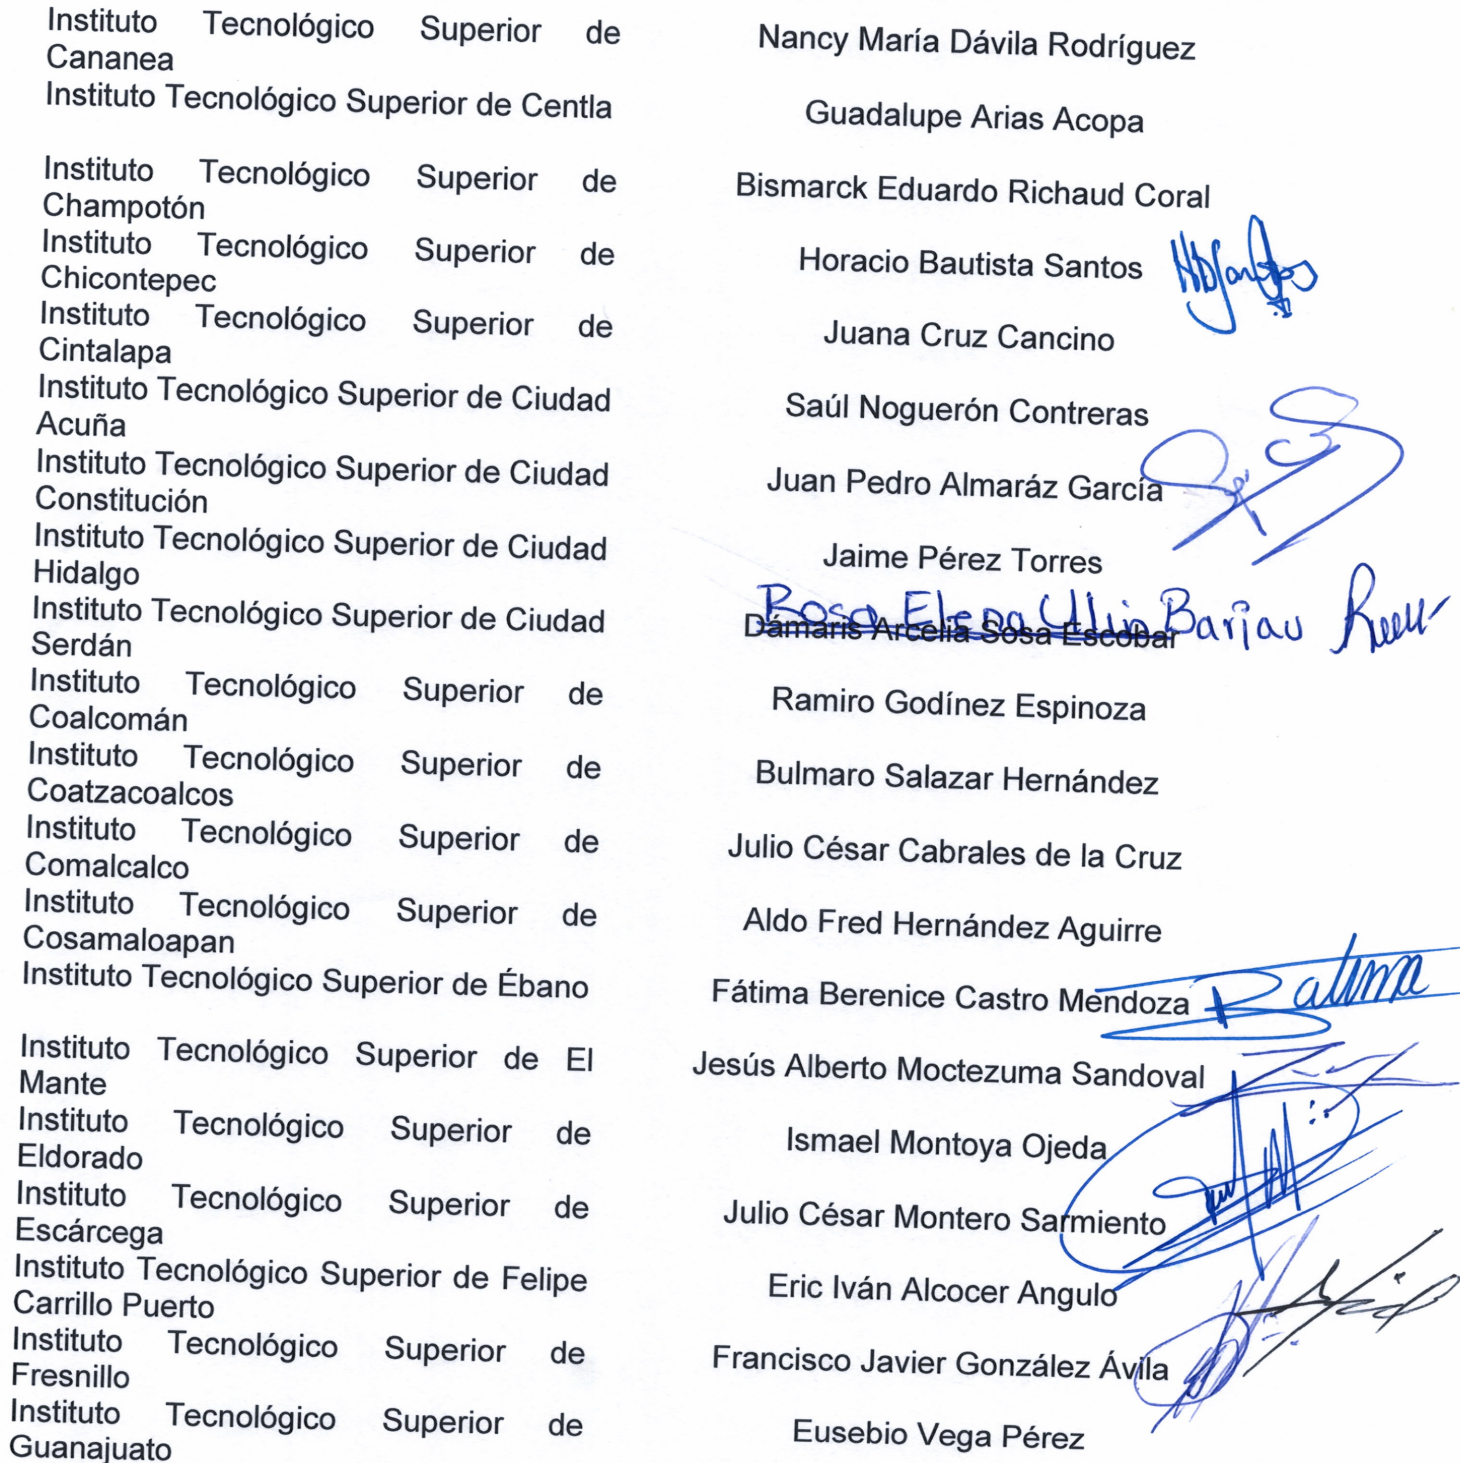 Instituto Tecnológico Superior de
Cananea
Nancy María Dávila Rodríguez
Instituto Tecnológico Superior de Centla
Guadalupe Arias Acopa
Instituto Tecnológico Superior de
Champotón
Bismarck Eduardo Richaud Coral
Instituto Tecnológico Superior de
Chicontepec
Horacio Bautista Santos
Instituto Tecnológico Superior de
Cintalapa
Juana Cruz Cancino
Instituto Tecnológico Superior de Ciudad
Acuña
Saúl Noguerón Contreras
Instituto Tecnológico Superior de Ciudad
Constitución
Juan Pedro Almaráz García
Instituto Tecnológico Superior de Ciudad
Hidalgo
Jaime Pérez Torres
Instituto Tecnológico Superior de Ciudad
Serdán
Rosa Elena Barjau
Dámaris Arcelia Sosa Escobar
Instituto Tecnológico Superior de
Coalcomán
Ramiro Godínez Espinoza
Instituto Tecnológico Superior de
Coatzacoalcos
Bulmaro Salazar Hernández
Instituto Tecnológico Superior de
Comalcalco
Julio César Cabrales de la Cruz
Instituto Tecnológico Superior de
Cosamaloapan
Aldo Fred Hernández Aguirre
Instituto Tecnológico Superior de Ébano
Fátima Berenice Castro Mendoza
Instituto Tecnológico Superior de El
Mante
Jesús Alberto Moctezuma Sandoval
Instituto Tecnológico Superior de
Eldorado
Ismael Montoya Ojeda
Instituto Tecnológico Superior de
Escárcega
Julio César Montero Sarmiento
Instituto Tecnológico Superior de Felipe
Carrillo Puerto
Eric Iván Alcocer Angulo
Instituto Tecnológico Superior de
Fresnillo
Francisco Javier González Ávila
Instituto Tecnológico Superior de
Guanajuato
Eusebio Vega Pérez